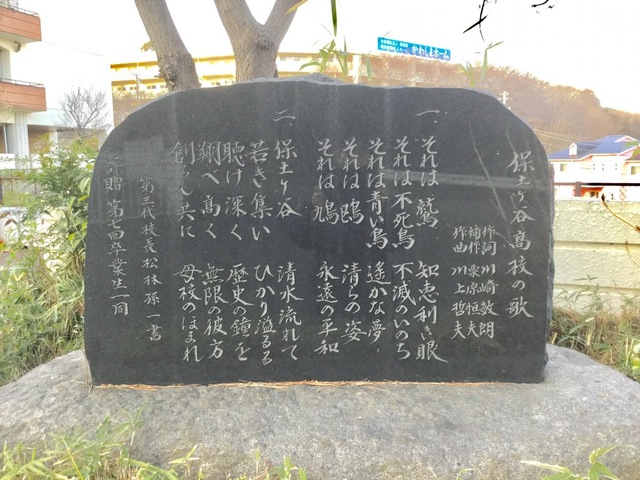 保土ヶ谷高校の歌
作詞 川崎敦朗
補作 栗原恒夫
作曲 川上哲夫
一 それは鷲 知恵利き眼
それは不死鳥 不滅のいのち
それは青い鳥 遙かな夢
それは鴎 清らの姿
それは鳩 永遠の平和
二 保土ヶ谷 清水流れて
若き集い ひかり溢るる
聴け深く 歴史の鐘を
翔べ高く 無限の彼方
創らん共に 母校のほまれ
第三代校長 松林孫一書
寄贈 第七四卒業生一同
かわしまホーム